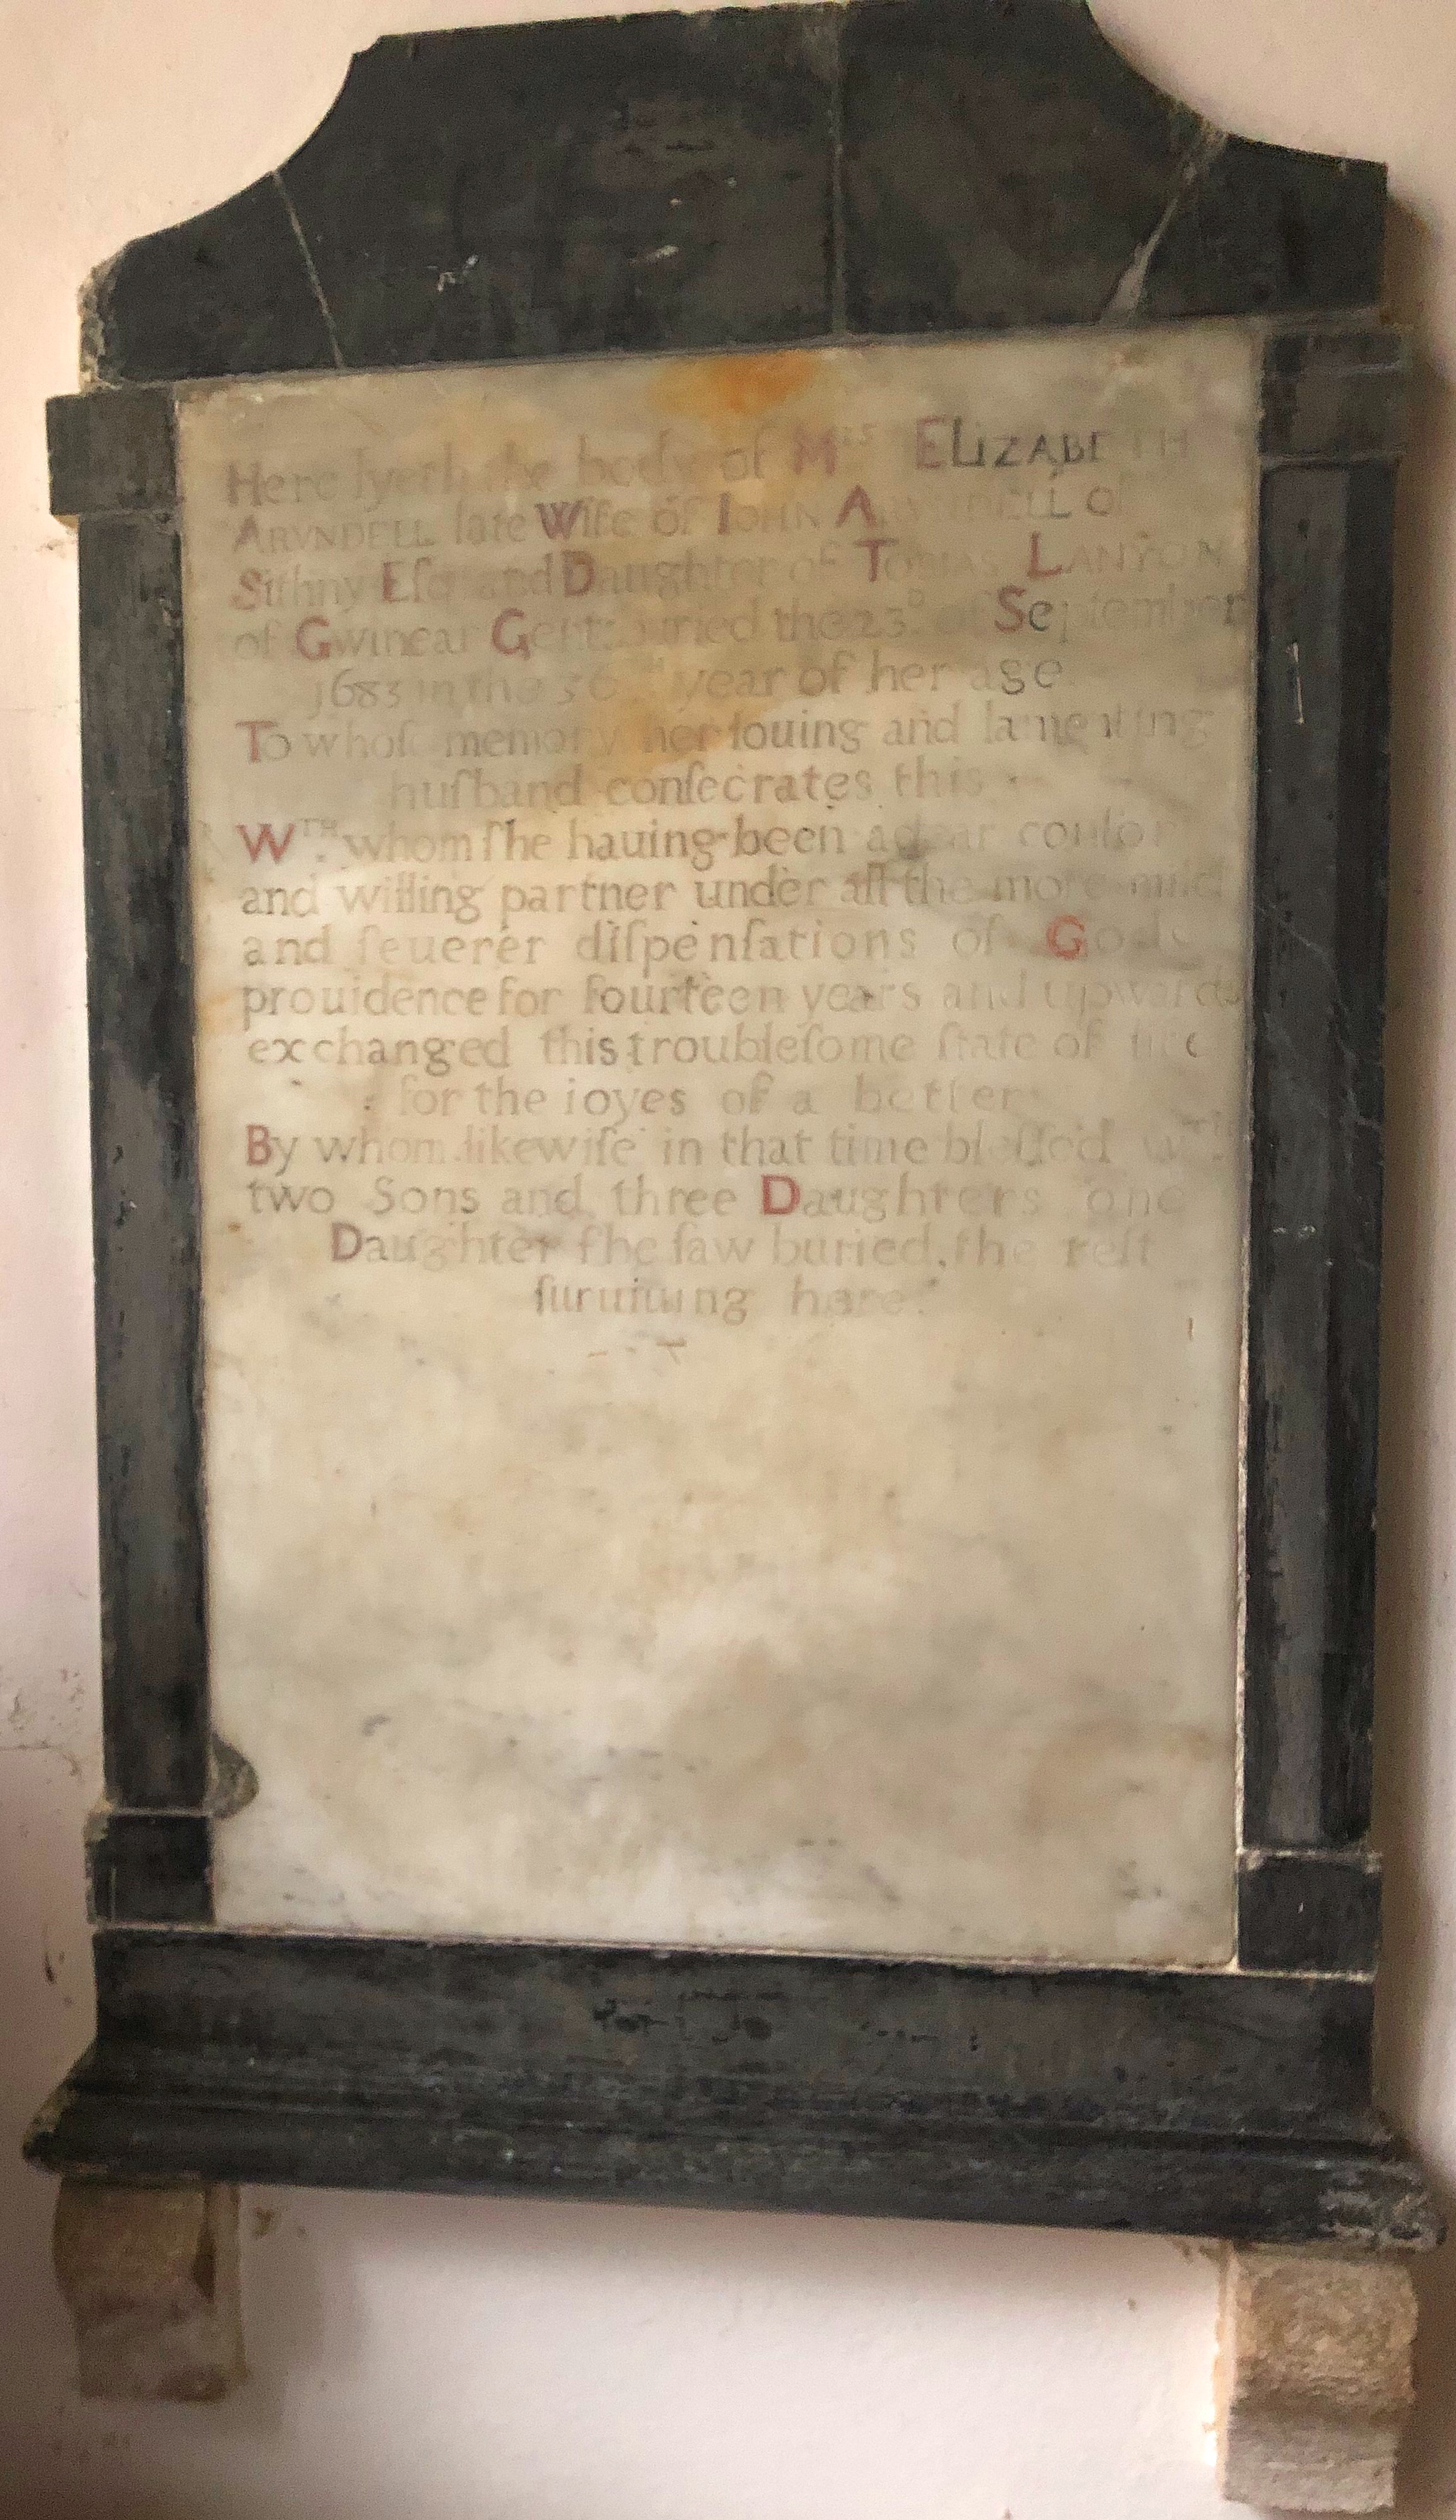 Here lyeth the body of Mrs ELIZABETH
ARVNDELL late Wife of IOHN ARVNDELL of
Sithny Eſqr and Daughter of TOBIAS LANYON
of Gwinear Gent: buried the 23.º of September
1683 in the 36 year of her age
To whoſe memory her louing and lamenting
huſband conſecrates this
WTH. whom ſhe hauing been a dear conſort
and willing partner under all the more mild
and ſeuerer diſpenſations of Gods
prouidence for fourteen years and upwards
exchanged this troubleſome ſtate of life
for the ioyes of a better
By whom likewiſe in that time bleſſed wth
two Sons and three Daughters one
Daughter ſhe ſaw buried, the reſt
ſuruiuing here.